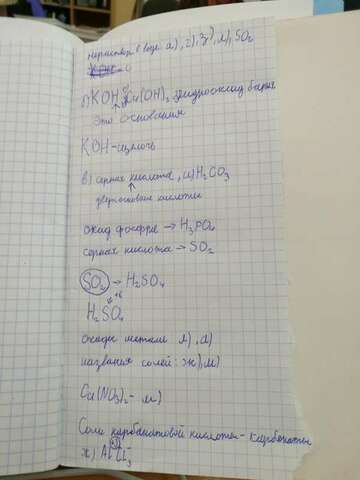 нераствор. в воде а), г), з), л), SO₂
KOH
KOH, Cu(OH)₂, гидроксид бария
Это основания
KOH - щелочь
в) серная кислота, и) H₂CO₃
двухосновные кислоты
оксид фосфора → H₃PO₄
серная кислота → SO₂
SO₂ → H₂SO₄
+6
H₂SO₄
оксиды металл л), д)
названия солей: ж), м)
Cu(NO₃)₂ - м)
Соли карбонатовой кислоты - карбонаты
ж) AlCl₃